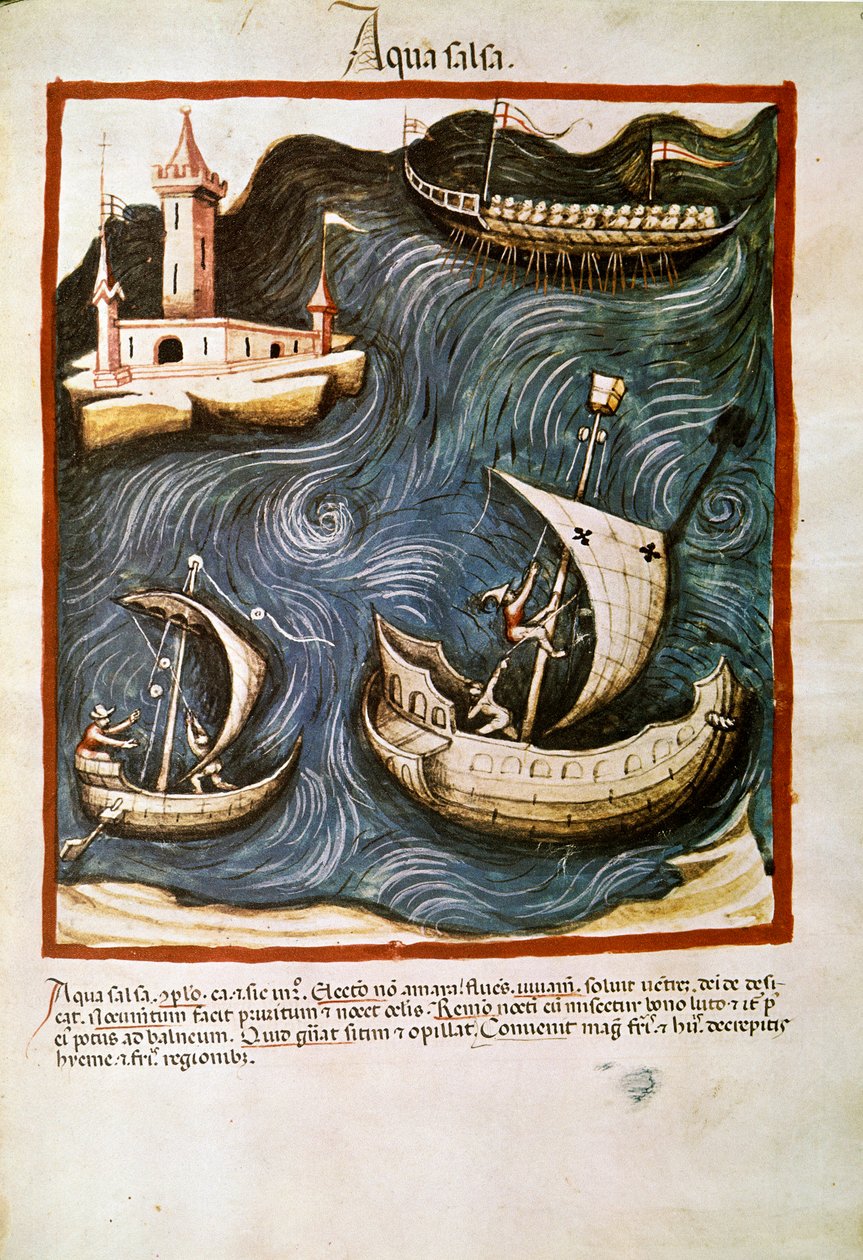 Aqua salsa.
Aqua salsa. ɔplo. ca. ⁊. sic in 2°. Electio nō amara. fluēs. iuuamen. soluit uētrez. dei de desi-
cat. Nocumentum facit pruritum ⁊ nocet oclis. Remo nocti cū miscetur bono luto ⁊ it p
ei potus ad balneum. Quid gnāat sitim ⁊ opillat. Conuenit mag frīs. ⁊ hūs. decrepitis
hyeme. ⁊. frīs regionibz.